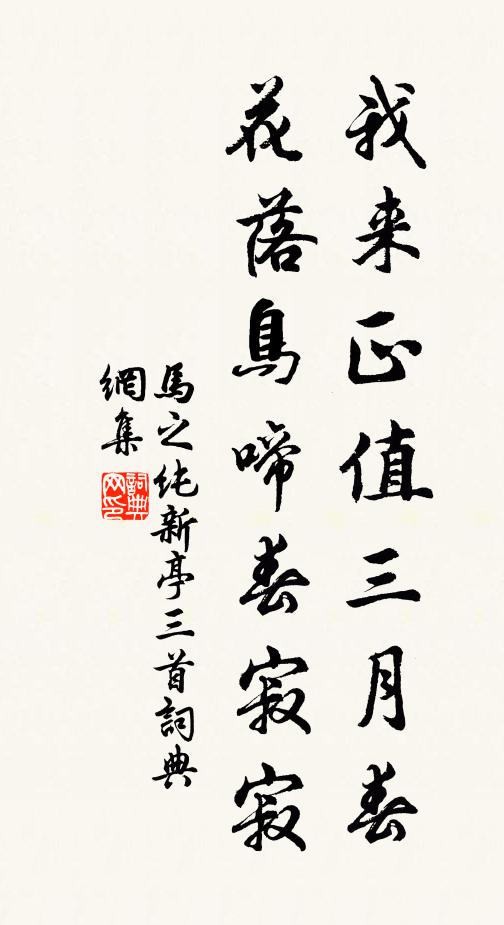 我来正值三月春
花落鳥啼春寂寂
馬之纯新亭三首詞典
網集
詞典
网印